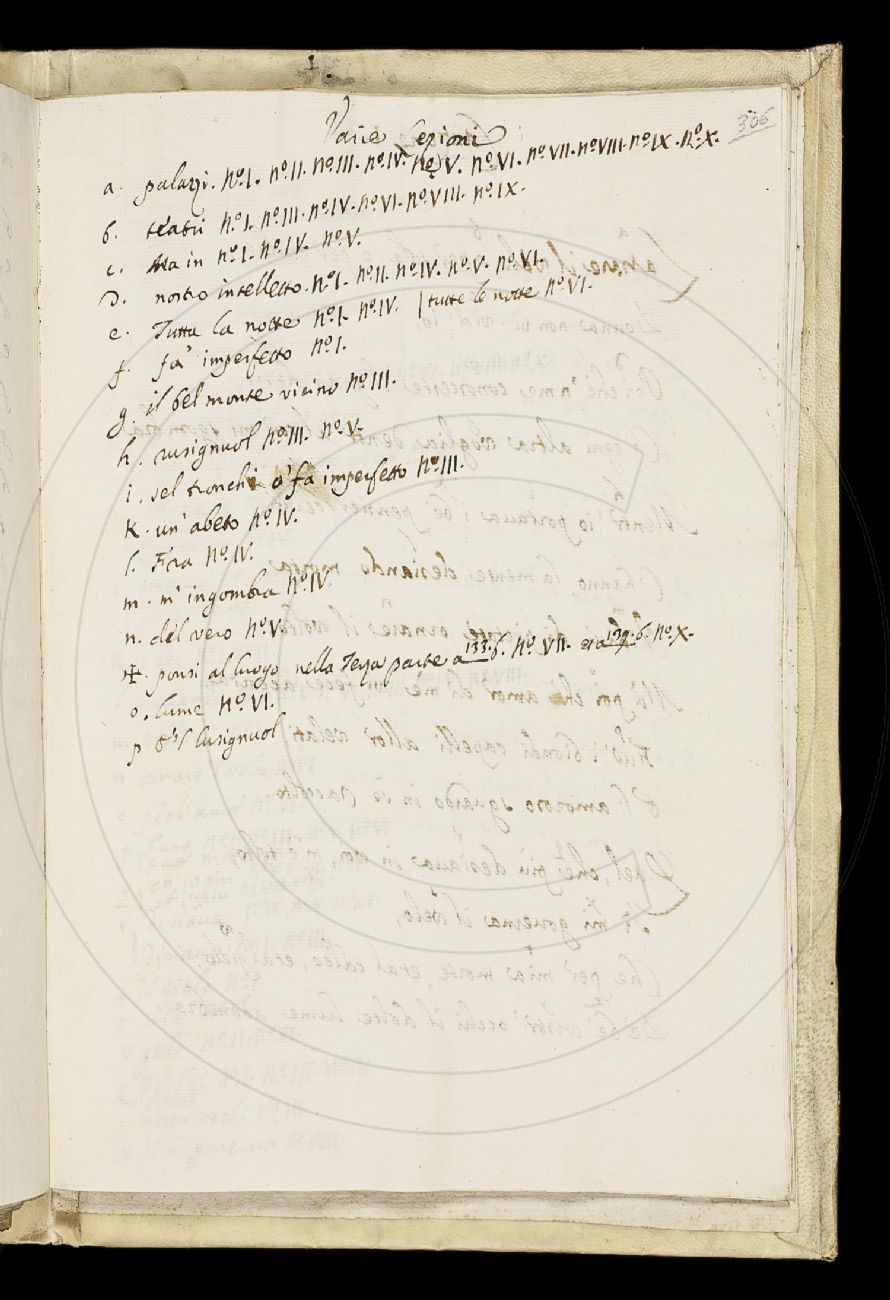 306
Varie Lezioni
a. palazzi. nº. I. nº. II. nº. III. nº. IV. nº. V. nº. VI. nº. VII. nº. VIII. nº. IX. nº. X.
b. teatri nº. I. nº. III. nº. IV. nº. VI. nº. VIII. nº. IX.
c. Ma in nº. I. nº. IV. nº. V.
D. nostro intelletto. nº. I. nº. II. nº. IV. nº. V. nº. VI.
e. Tutta la notte nº. I. nº. IV. | tutte le notte nº. VI.
f. fa' imperfetto nº. I.
g. il bel monte vicino nº. III.
h. rusignuol nº. III. nº. V.
i. sel tronchi o' fa imperfetto nº. III.
K. un' abeto nº. IV.
l. Fra nº. IV.
m. m' ingombra nº. IV.
n. del vero nº. V.
ponsi al luogo nella Terza parte a 133. b. nº. VII. era 139. b. nº. X.
o. lume nº. VI.
p e'l lusignuol